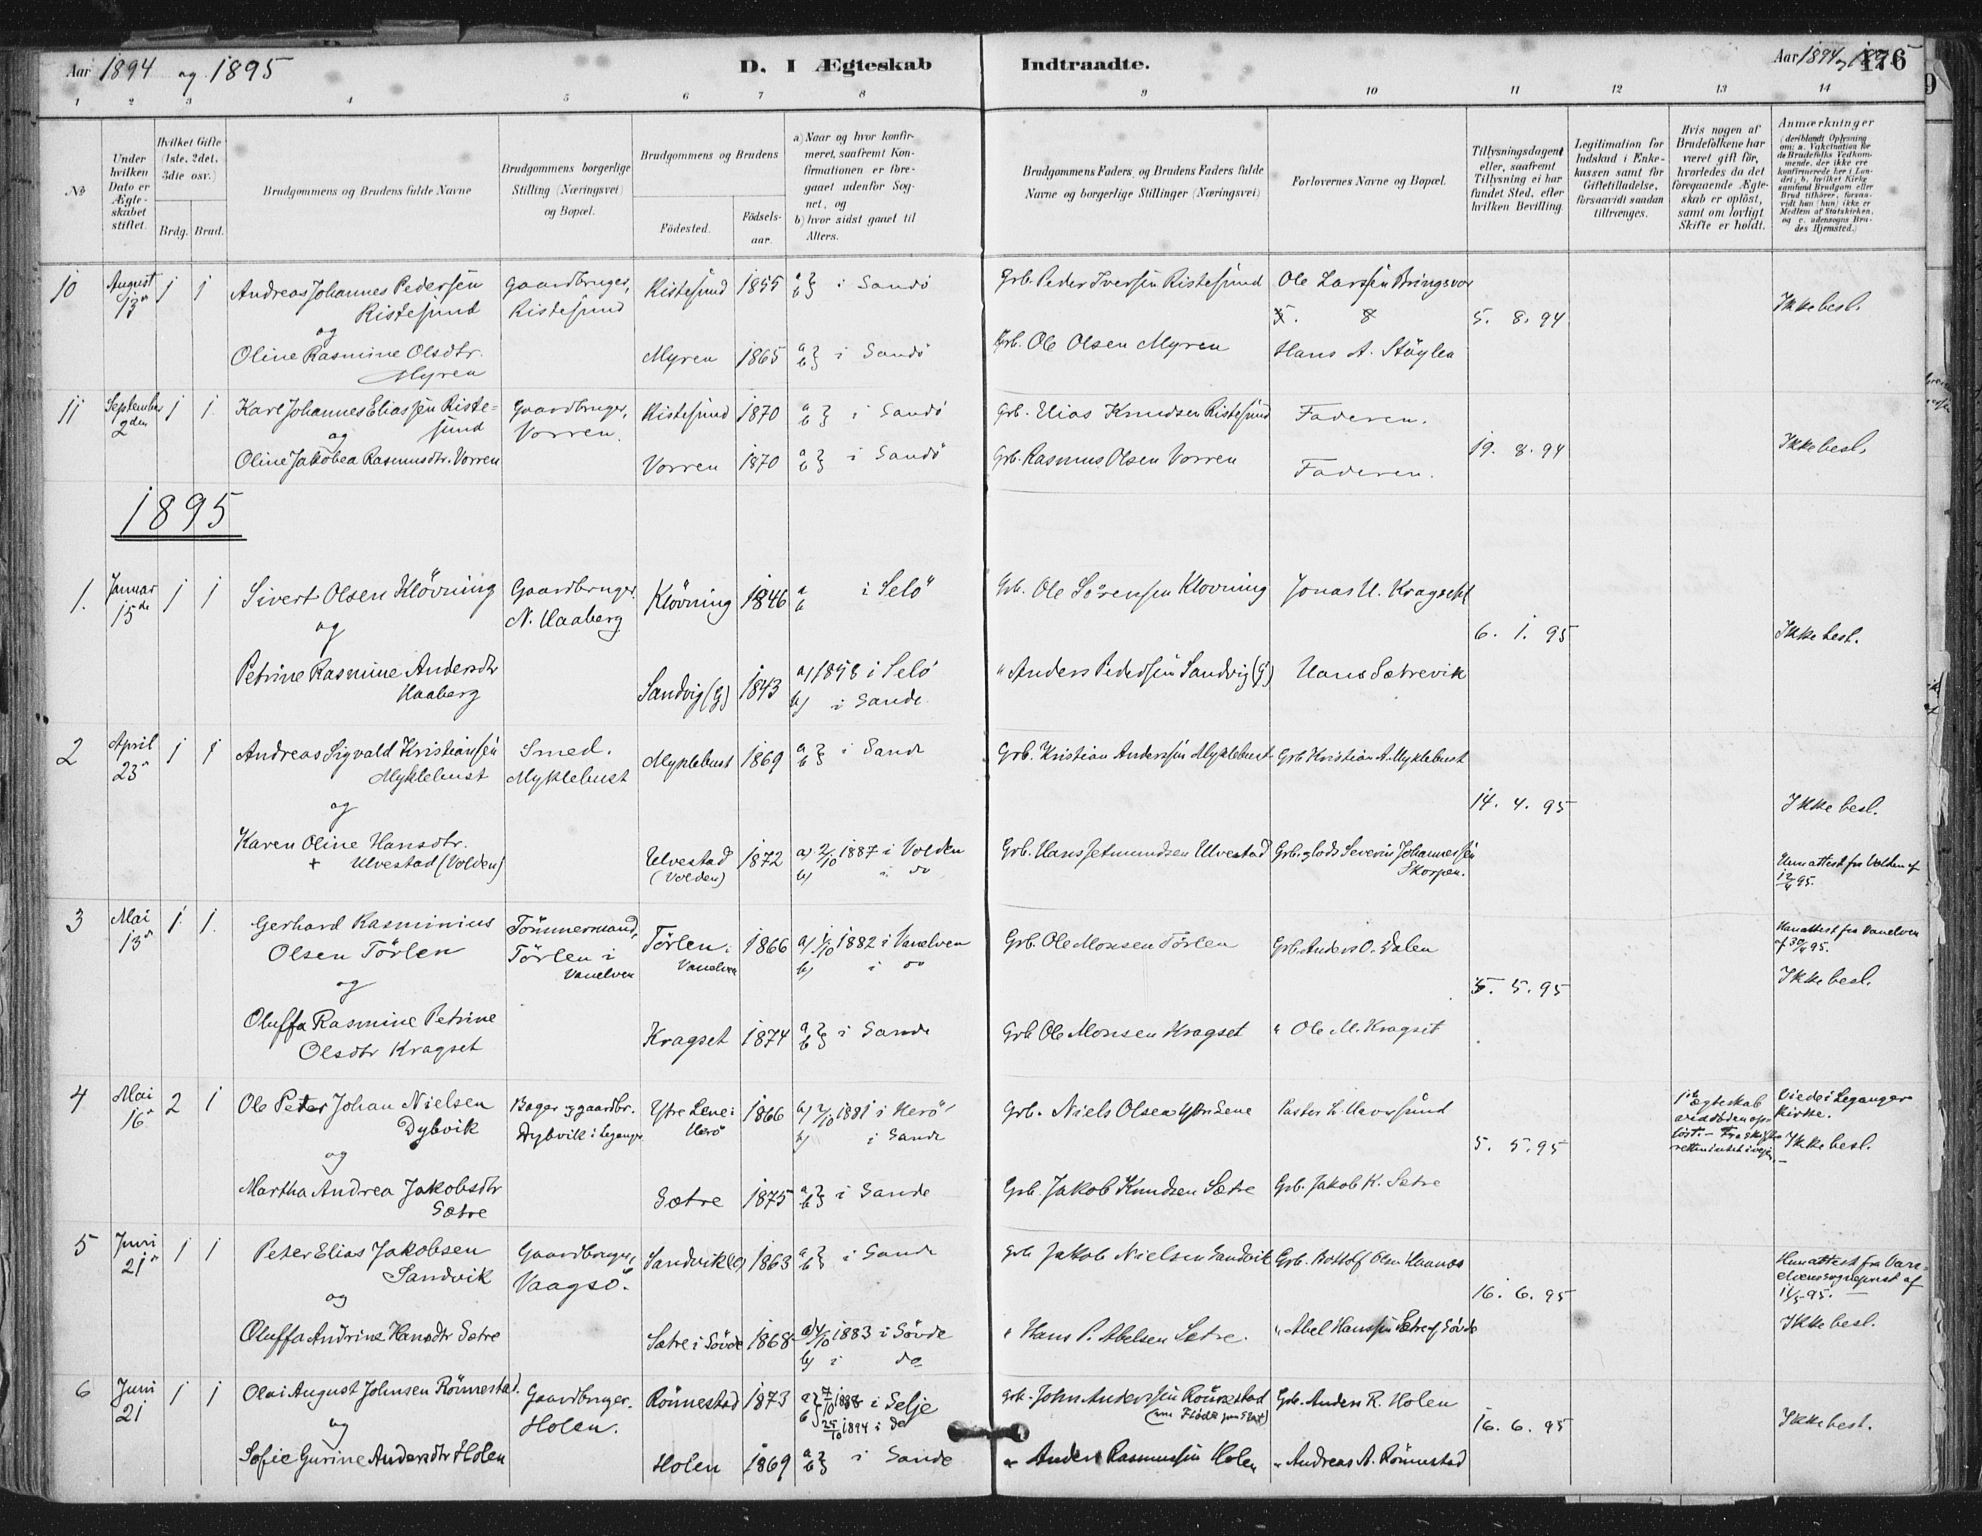 Aar 1894 og 1895
D. I Ægteskab Indtraadte.
Aar 1894 176
1 2 3 4 5 6 7 8 9 10 11 12 13 14
No
Under hvilken Dato er Ægteskabet stiftet.
Hvilket Gifte (1ste, 2det, 3die osv.)
Brdg. Brud.
Brudgommens og Brudens fulde Navne
Brudgommens borgerlige Stilling (Næringsvei) og Bopæl.
Brudgommens og Brudens
Fødested. Fødselsaar.
a) Naar og hvor konfirmeret, saafremt Konfirmationen er foregaaet udenfor Sognet, og
b) hvor sidst gaaet til Alters.
Brudgommens Faders og Brudens Faders fulde Navne og borgerlige Stillinger (Næringsvei)
Forlovernes Navne og Bopæl.
Tillysningsdagene eller, saafremt Tillysning ei har fundet Sted, efter hvilken Bevilling.
Legitimation for Indskud i Enkekassen samt for Giftetilladelse, forsaavidt saadan tiltrænges.
Hvis nogen af Brudefolkene har været gift før, hvorledes da det foregaaende Ægteskab er opløst, samt om lovligt Skifte er holdt.
Anmærkninger
10 August 13de 1 1 Andreas Johannes Pedersen Ristesund Gaardbruger, Ristesund Ristesund 1855 a b i Sandø Grb. Peder Iversen Ristesund Ole Larssen Bringsvor
5. 8. 94 Ikke besl.
og
Oline Rasmine Olsdtr. Myren Myren 1865 a b i Sandø Grb. Ole Olsen Myren Hans A. Støylen
11 September 2den 1 1 Karl Johannes Eliassen Ristesund Gaardbruger, Vorren. Ristesund 1870 a b i Sandø Grb. Elias Knudsen Ristesund Faderen.
og
19. 8. 94 Ikke besl.
Oline Jakobea Rasmusdtr. Vorren Vorren 1870 a b i Sandø Grb. Rasmus Olsen Vorren Faderen.
1895
1. Januar 15de 1 1 Sivert Olsen Kløvning Gaardbruger. N. Haaberg Kløvning 1846 a b i Selø Grb. Ole Sørensen Klovning Jonas H. Kragseth
og
6. 1. 95 Ikke besl.
Petrine Rasmine Andersdtr Haaberg Sandvig (G) 1843 a) 1858 i Selø b) i Sande " Anders Pedersen Sandvig (G) Hans Sætrevik
2 April 23de 1 1 Andreas Sigvald Kristiansen Myklebust Smed. Myklebust Myklebust 1869 a b i Sande Grb. Kristian Anderssen Myklebust Grb Kristian A. Myklebust
og
14. 4. 95 Ikke besl.
Karen Oline Hansdtr. + Ulvestad (Volden) Ulvestad (Volden) 1872 a) 2/10 1887 i Volden b) i do Grb. Hans Jetmundsen Ulvestad Grb. Severin Johannessen Skorpen.
Hun attest fra Volden af 12/4 95.
3 Mai 13de 1. 1. Gerhard Rasminius Olsen Tørlen Tømmermand, Tørlen i Vanelven Tørlen. Vanelven 1866 a) 1/10 1882 i Vanelven b) i do Grb. Ole Monsen Tørlen Grb. Anders O. Dalen
Han attest fra Vanelven af 30/4 95.
og
5. 5. 95 Ikke besl.
Oluffa Rasmine Petrine Olsdtr Kragset Kragset 1874 a b i Sande Grb Ole Monsen Kragset " Ole M. Kragset
4 Mai 16de 2 1 Ole Peter Johan Nielsen Dybvik Bager og gaardbr. Dybvik i Leganger Ytre Lene i Herø 1866 a) 2/10 1881 i Herø b) i Sande Grb. Niels Olsen Ytre Lene Pastor L. Haversund
5. 5. 95
1te Ægteskab ved døden opløst.
Viede i Leganger Kirke.
Ikke besl.
og
Martha Andrea Jakobsdtr Sætre Sætre 1875 a b i Sande Grb. Jakob Knudsen Sætre Grb. Jakob K. Sætre
5 Juni 21de 1 1 Peter Elias Jakobsen Sandvik Gaardbruger, Vaagsø. Sandvik (G) 1863 a b i Sande Grb Jakob Nielsen Sandvik Grb. Bottolf Olsen Haanes
16. 6. 95
Hun attest fra Vanelvens sogneprest af 11/5 95.
Ikke besl.
og
Oluffa Andrine Hansdtr Sætre Sætre i Søvde 1868 a) 4/10 1883 i Søvde b) i do " Hans P. Abelsen Sætre. " Abel Hanssen Sætre af Søvde
6 Juni 21 1 1 Olai August Johnsen Rønnestad. Gaardbruger. Holen. Rønnestad 1873 a 7/10 1888 i Selje b 25/10 1894 i do Grb. John Anderssen Rønnestad Grb. Anders R. Holen
og
16. 6. 95 Ikke besl.
Sofie Gurine Andersdtr Holen Holen 1869 a b i Sande " Anders Rasmussen Holen " Andreas A. Rønnestad